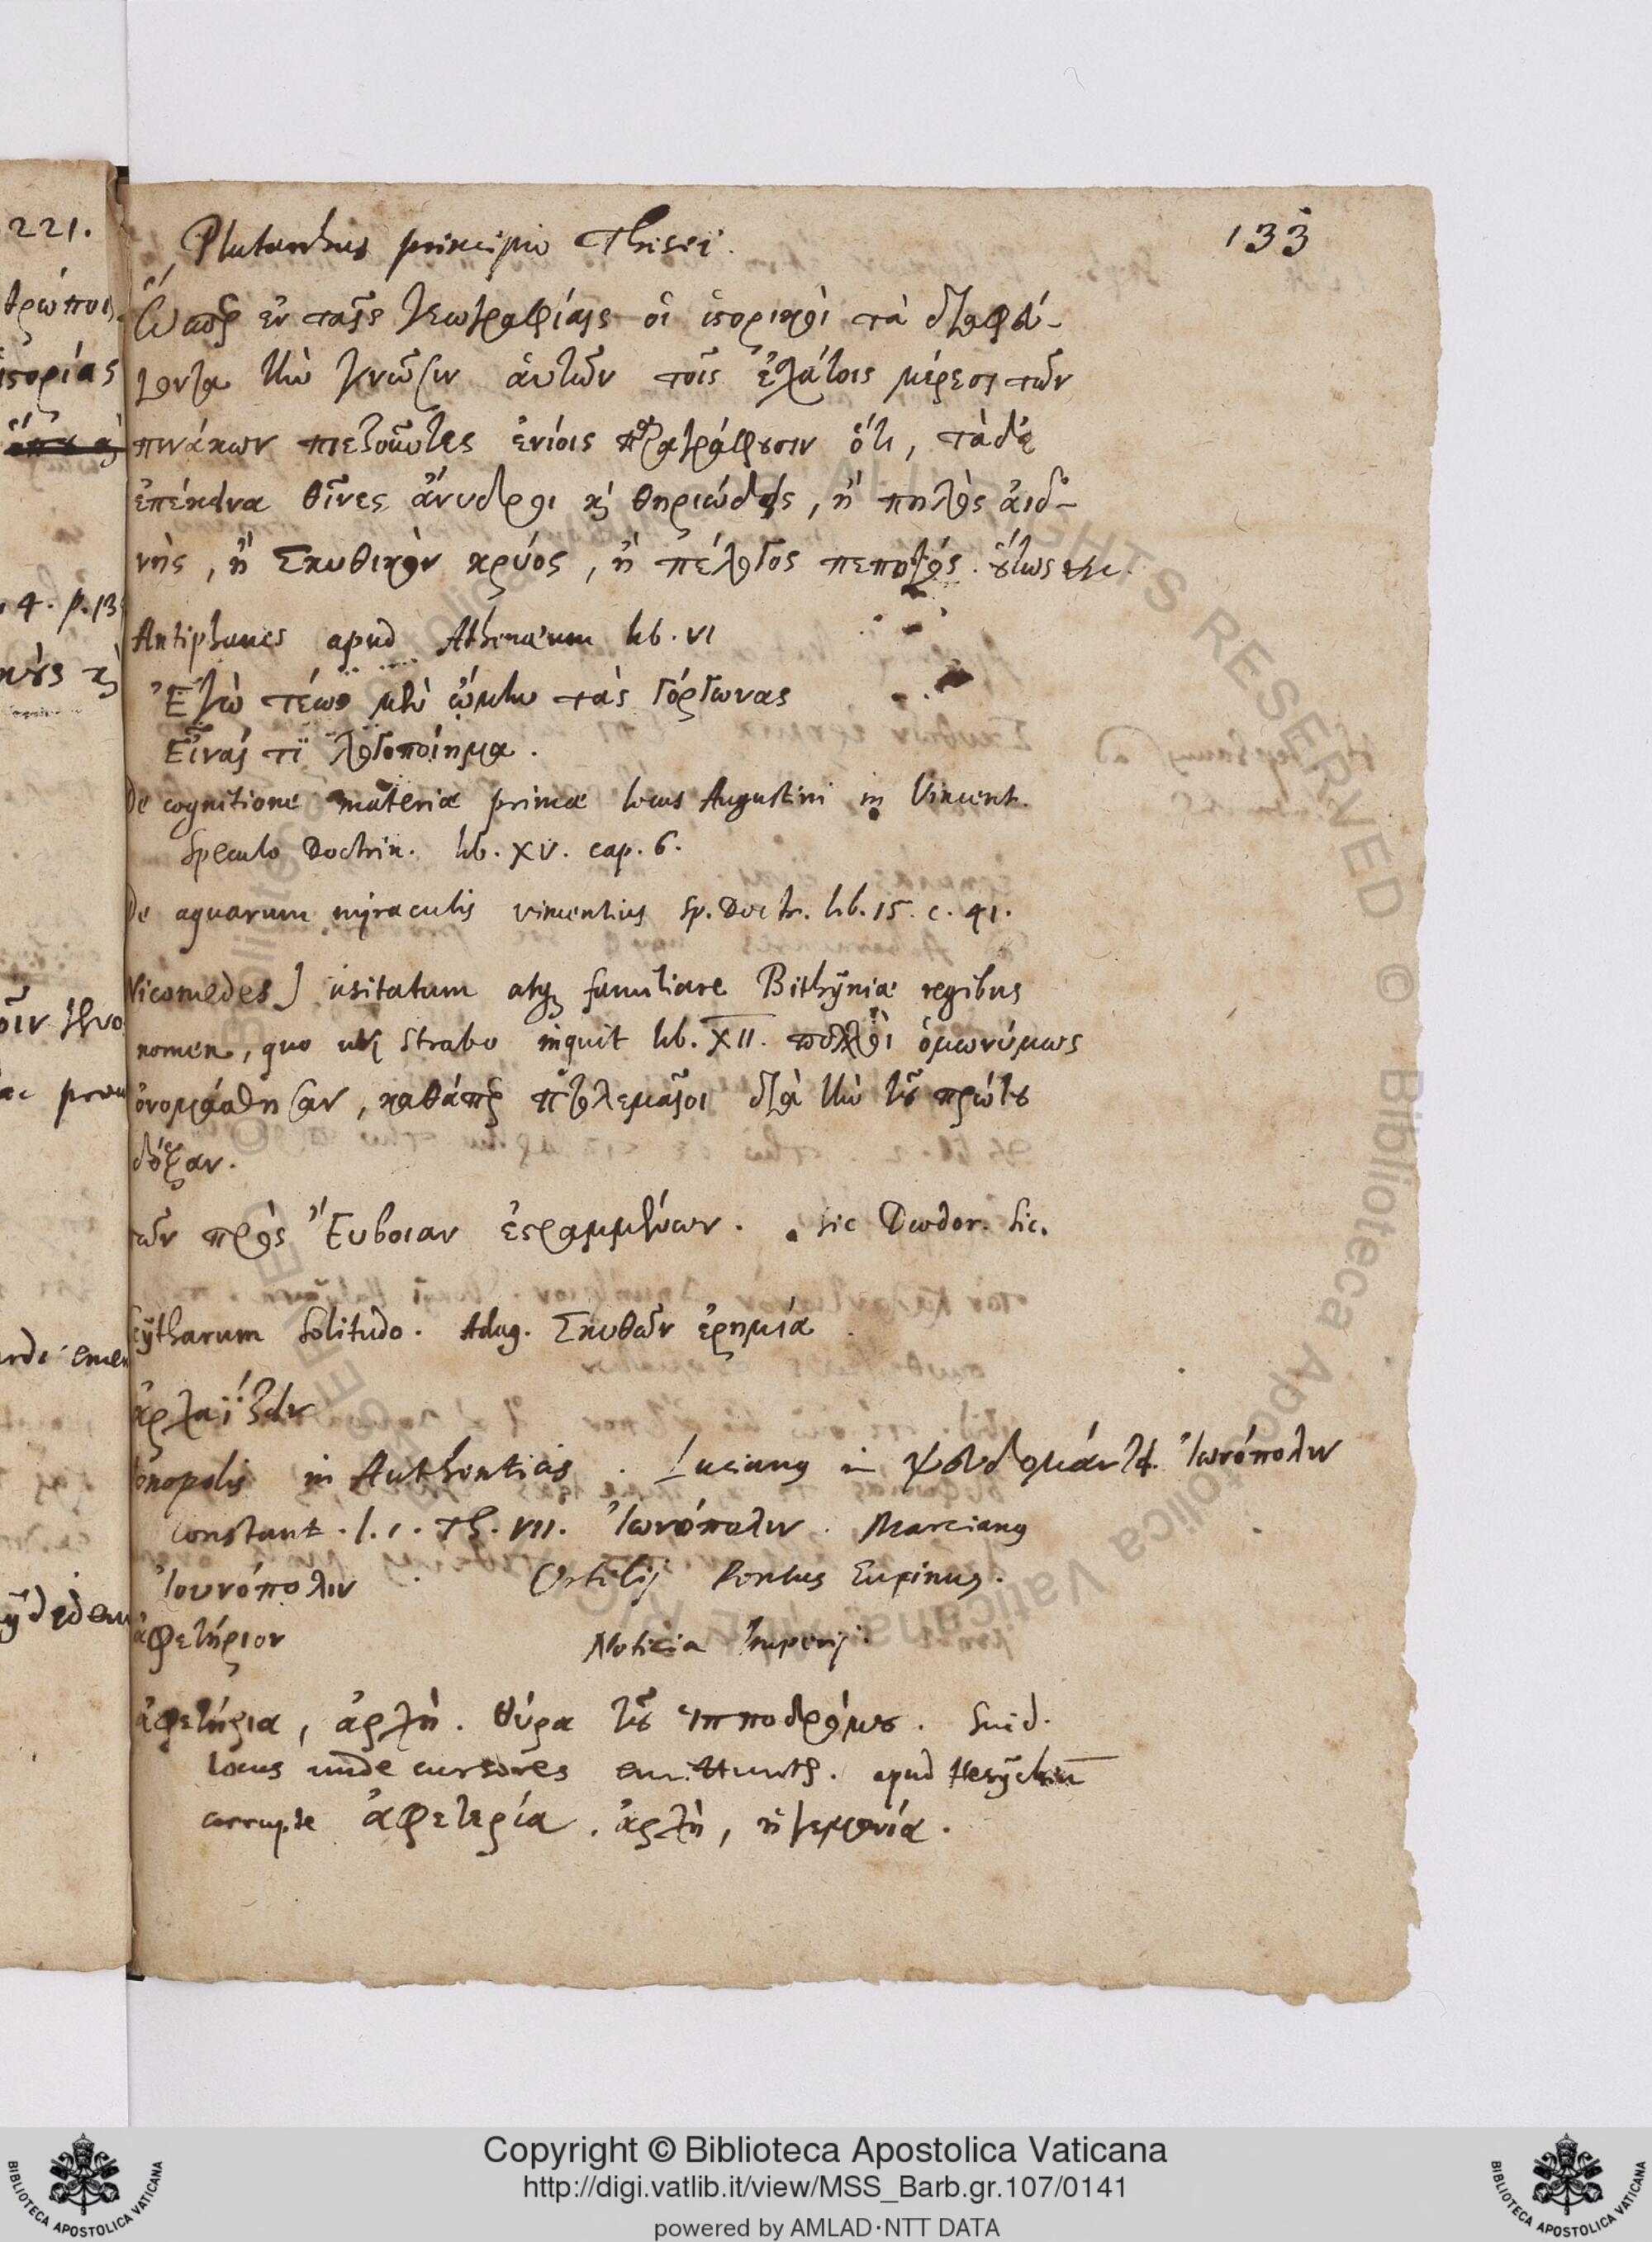 133
Plutarchus principio Thesei.
Ὥσπερ ἐν ταῖς γεωγραφίαις οἱ ἱστορικοὶ τὰ διαφεύ-
γοντα τὴν γνῶσιν αὐτῶν τοῖς ἐσχάτοις μέρεσι τῶν
πινάκων πιεζοῦντες ἐνίοις παραγράφουσιν ὅτι, τὰ δὲ
ἐπέκεινα θῖνες ἄνυδροι καὶ θηριώδεις, ἢ πηλὸς ἀϊδ-
νὴς, ἢ Σκυθικὸν κρύος, ἢ πέλαγος πεπηγός. οὕτως etc.
Antiphanes apud Athenæum lib. VI
Ἐγὼ τέως μὲν ᾤμην τὰς Γόργονας
Εἶναί τι λογοποίημα.
De cognitione materiæ primæ locus Augustini in Vincent.
Speculo Doctrin. lib. XV. cap. 6.
De aquarum miraculis vincentius Sp. Doctr. lib. 15. c. 41.
Nicomedes] usitatum atq; familiare Bithyniæ regibus
nomen, quo uti Strabo inquit lib. XII. πολλοὶ ὁμωνύμως
ὀνομάσθησαν, καθάπερ πτολεμαῖοι διὰ τὴν τοῦ πρώτου
δόξαν.
τῶν πρὸς Ἔυβοιαν ἐστραμμένων. sic Diodor. Sic.
Scytharum Solitudo. Adag. Σκυθῶν ἐρημία
ἀρχαΐζειν
Ionopolis in Authenticis. Lucianus in ψευδομάντει. Ἰωνόπολιν
Constant. l. 1. Th. VII. Ἰωνόπολιν. Marcianus
Ἰουνόπολιν Ortelij Pontus Euxinus.
ἀφετήριον Noticia Imperij.
ἀφετήρια, ἀρχὴ. θύρα τοῦ ἱπποδρόμου. Suid.
locus unde cursores emittuntur. apud Hesychiū
corrupte ἀφετερία. ἀρχὴ, ἡγεμονία.
221.
4. p. 13
Copyright © Biblioteca Apostolica Vaticana
http://digi.vatlib.it/view/MSS_Barb.gr.107/0141
powered by AMLAD·NTT DATA
BIBLIOTECA APOSTOLICA VATICANA
BIBLIOTECA APOSTOLICA VATICANA